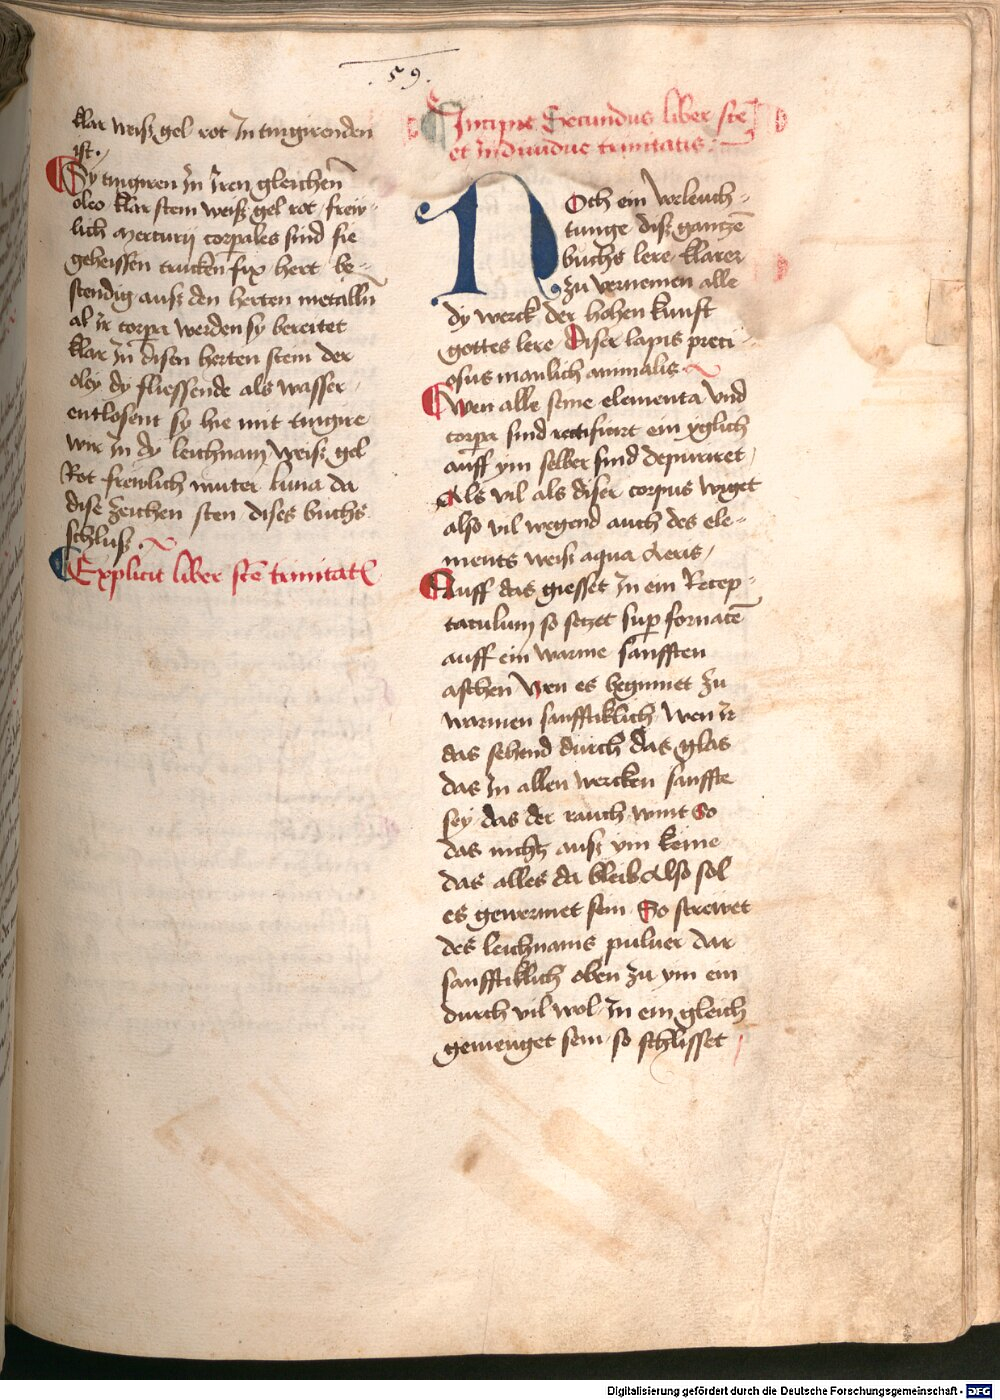 59.
klar weiß gel rot Jn tingirenden
ist.
Sy tingiren Jn Jren gleichen
oleo klar stein weiß gel rot frew
lich Mercurij corpales sind sie
geheissen trucken fix hert be-
stendig auß den herten metalln
al Jr corpa werden sy bereitet
klar Jn disen herten stein der
oley dy fliessende als wasser
entlosent sy hie mit tingire
wir Jn dy leichnam weiß gel
Rot frewlich muter luna da
dise zeichen sten dises buchs
schluß.
Explicit liber scē trinitatꝭ
Jncipit Secundus liber scē
et Jndiuidue trinitatis
NOch ein vorleuch-
tunge diß ganczē
buchs lere klarer
zu vernemen alle
dy werck der hohen kunst
gottes lere Diser lapis preci-
osus manlich animalis
Wen alle seine elementa vnd
corpa sind rectificirt ein yglich
auff ym selber sind depuriret
Als vil als diser corpus wiget
also vil wegend auch des ele-
ments weiß aqua Aeris
Auff das giesset Jn ein Recep-
taculum so seczet sup fornacē
auff ein warme sanfften
aschen Wen es begynnet zu
warmen sanfftiklich Wen Jr
das sehend durch das glas
das Jn allen wercken sanffte
sey das der rauch wint So
das nichtz auß ym keme
das alles da bleib Also sol
es gewermet sein So strewet
des leichnams puluer dar
sanfftiklich oben zu ym ein
durch vil wol Jn ein gleich
gemenget sein so schlisset
Digitalisierung gefördert durch die Deutsche Forschungsgemeinschaft - DFG